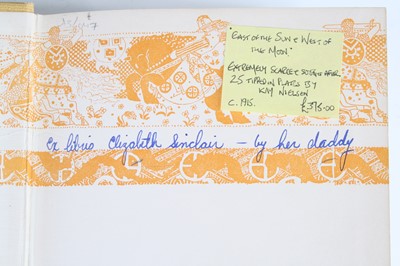 "EAST OF THE SUN & WEST OF
THE MOON"
EXTREMELY SCARCE & SOUGHT AFTER
25 TIPPED IN PLATES BY
KAY NIELSON
C. 1915.
£375.00
Ex libris Elizabeth Sinclair — by her daddy